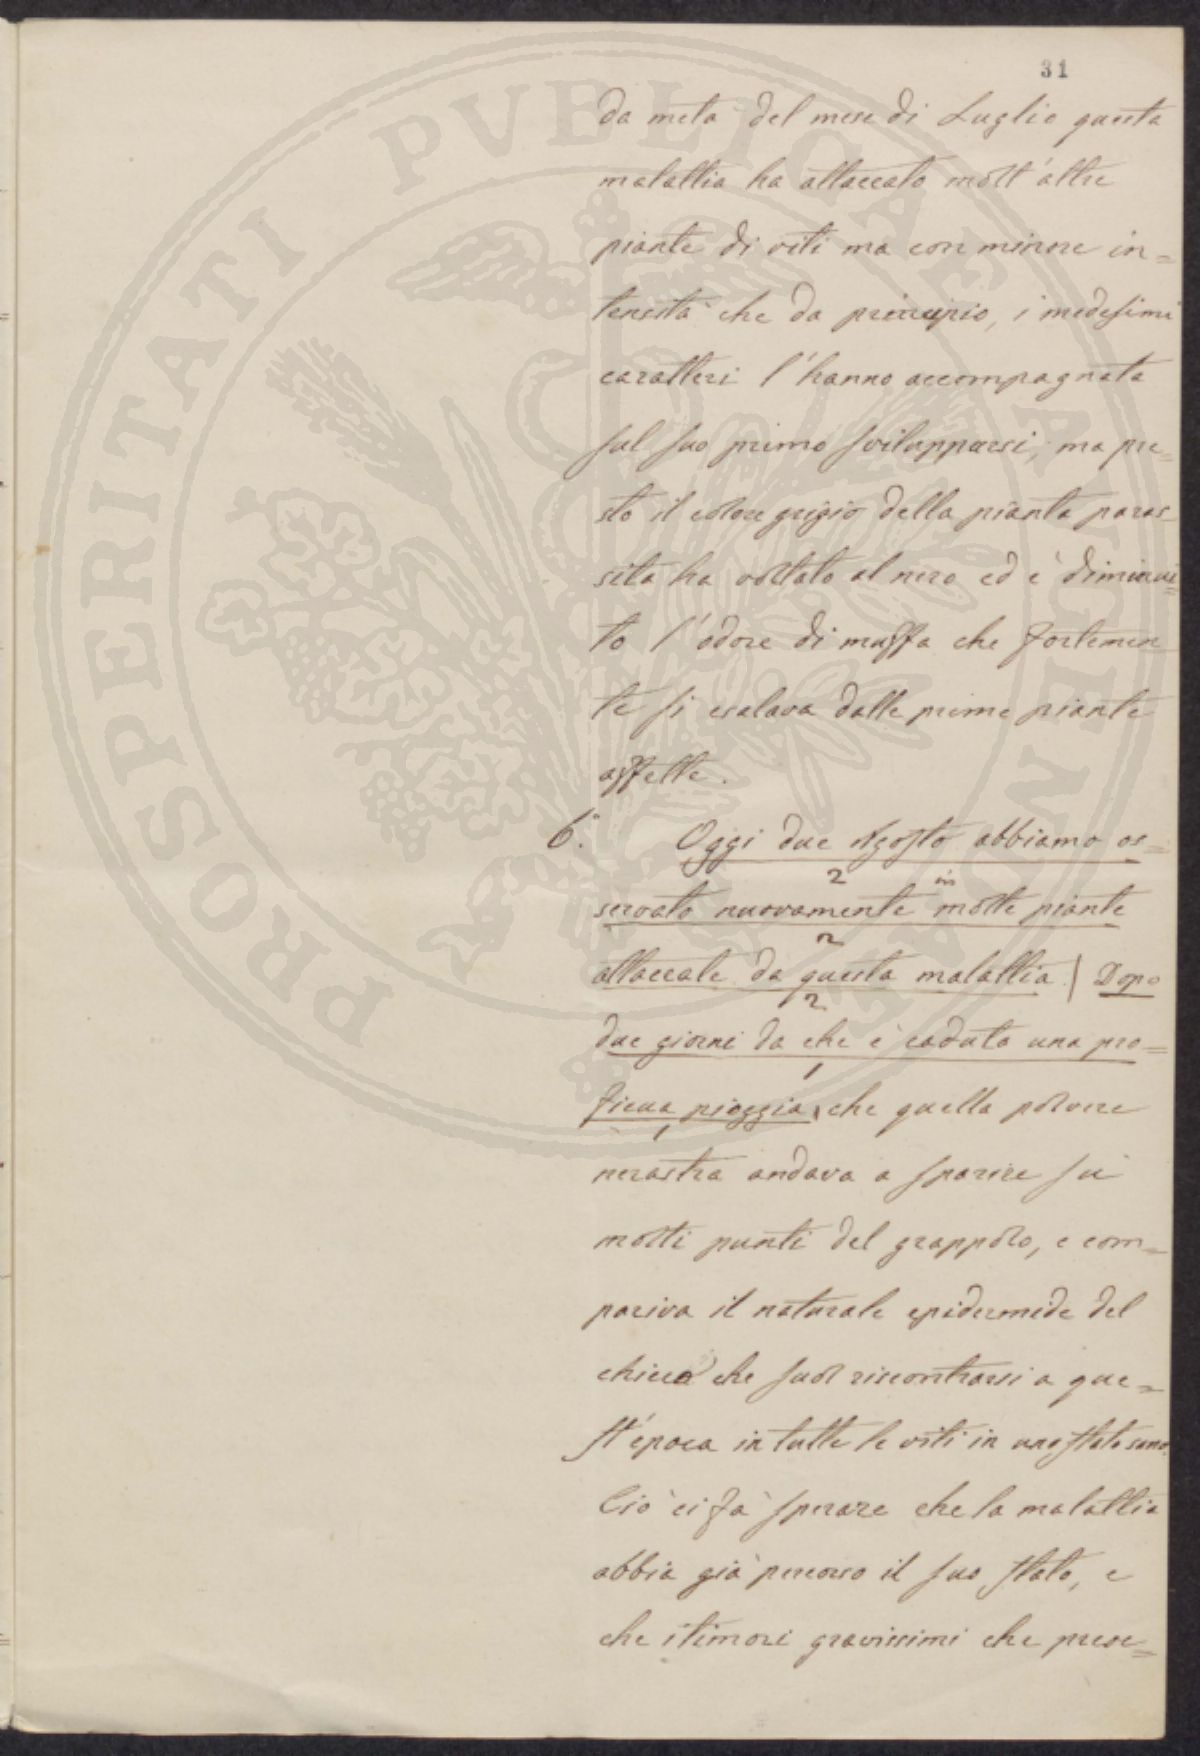 31
da meta del mese di Luglio questa
malattia ha attaccato molt'altre
piante di viti ma con minore in=
tensità che da principio, i medesimi
caratteri l'hanno accompagnata
sul suo primo svilupparsi, ma pre=
sto il colore grigio della pianta paras=
sita ha voltato al nero ed è diminui=
to l'odore di muffa che fortemen
te si esalava dalle prime piante
affette.
6.° Oggi due Agosto abbiamo os=
2 in
servato nuovamente molte piante
2
attaccate da questa malattia | Dopo
2
due giorni da che è caduta una pro=
1
ficua pioggia, che quella polvere
1
nerastra andava a sparire su
molti punti del grappolo, e com=
pariva il naturale epidermede del
chicco che suol riscontrarsi a que=
st'época in tutte le viti in uno stato sano.
Ciò ci fà sperare che la malattia
abbia già percorso il suo stato, e
che i timori gravissimi che prese=
PROSPERITATI PVBLICAE AVGENDAE